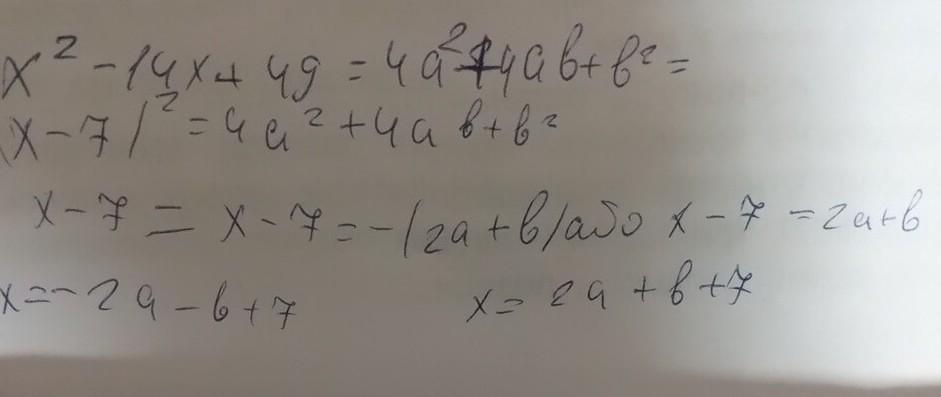 x² - 14x + 49 = 4a² + 4ab + b² =
(x - 7)² = 4a² + 4ab + b²
x - 7 = x - 7 = -(2a + b) або x - 7 = 2a + b
x = -2a - b + 7 x = 2a + b + 7